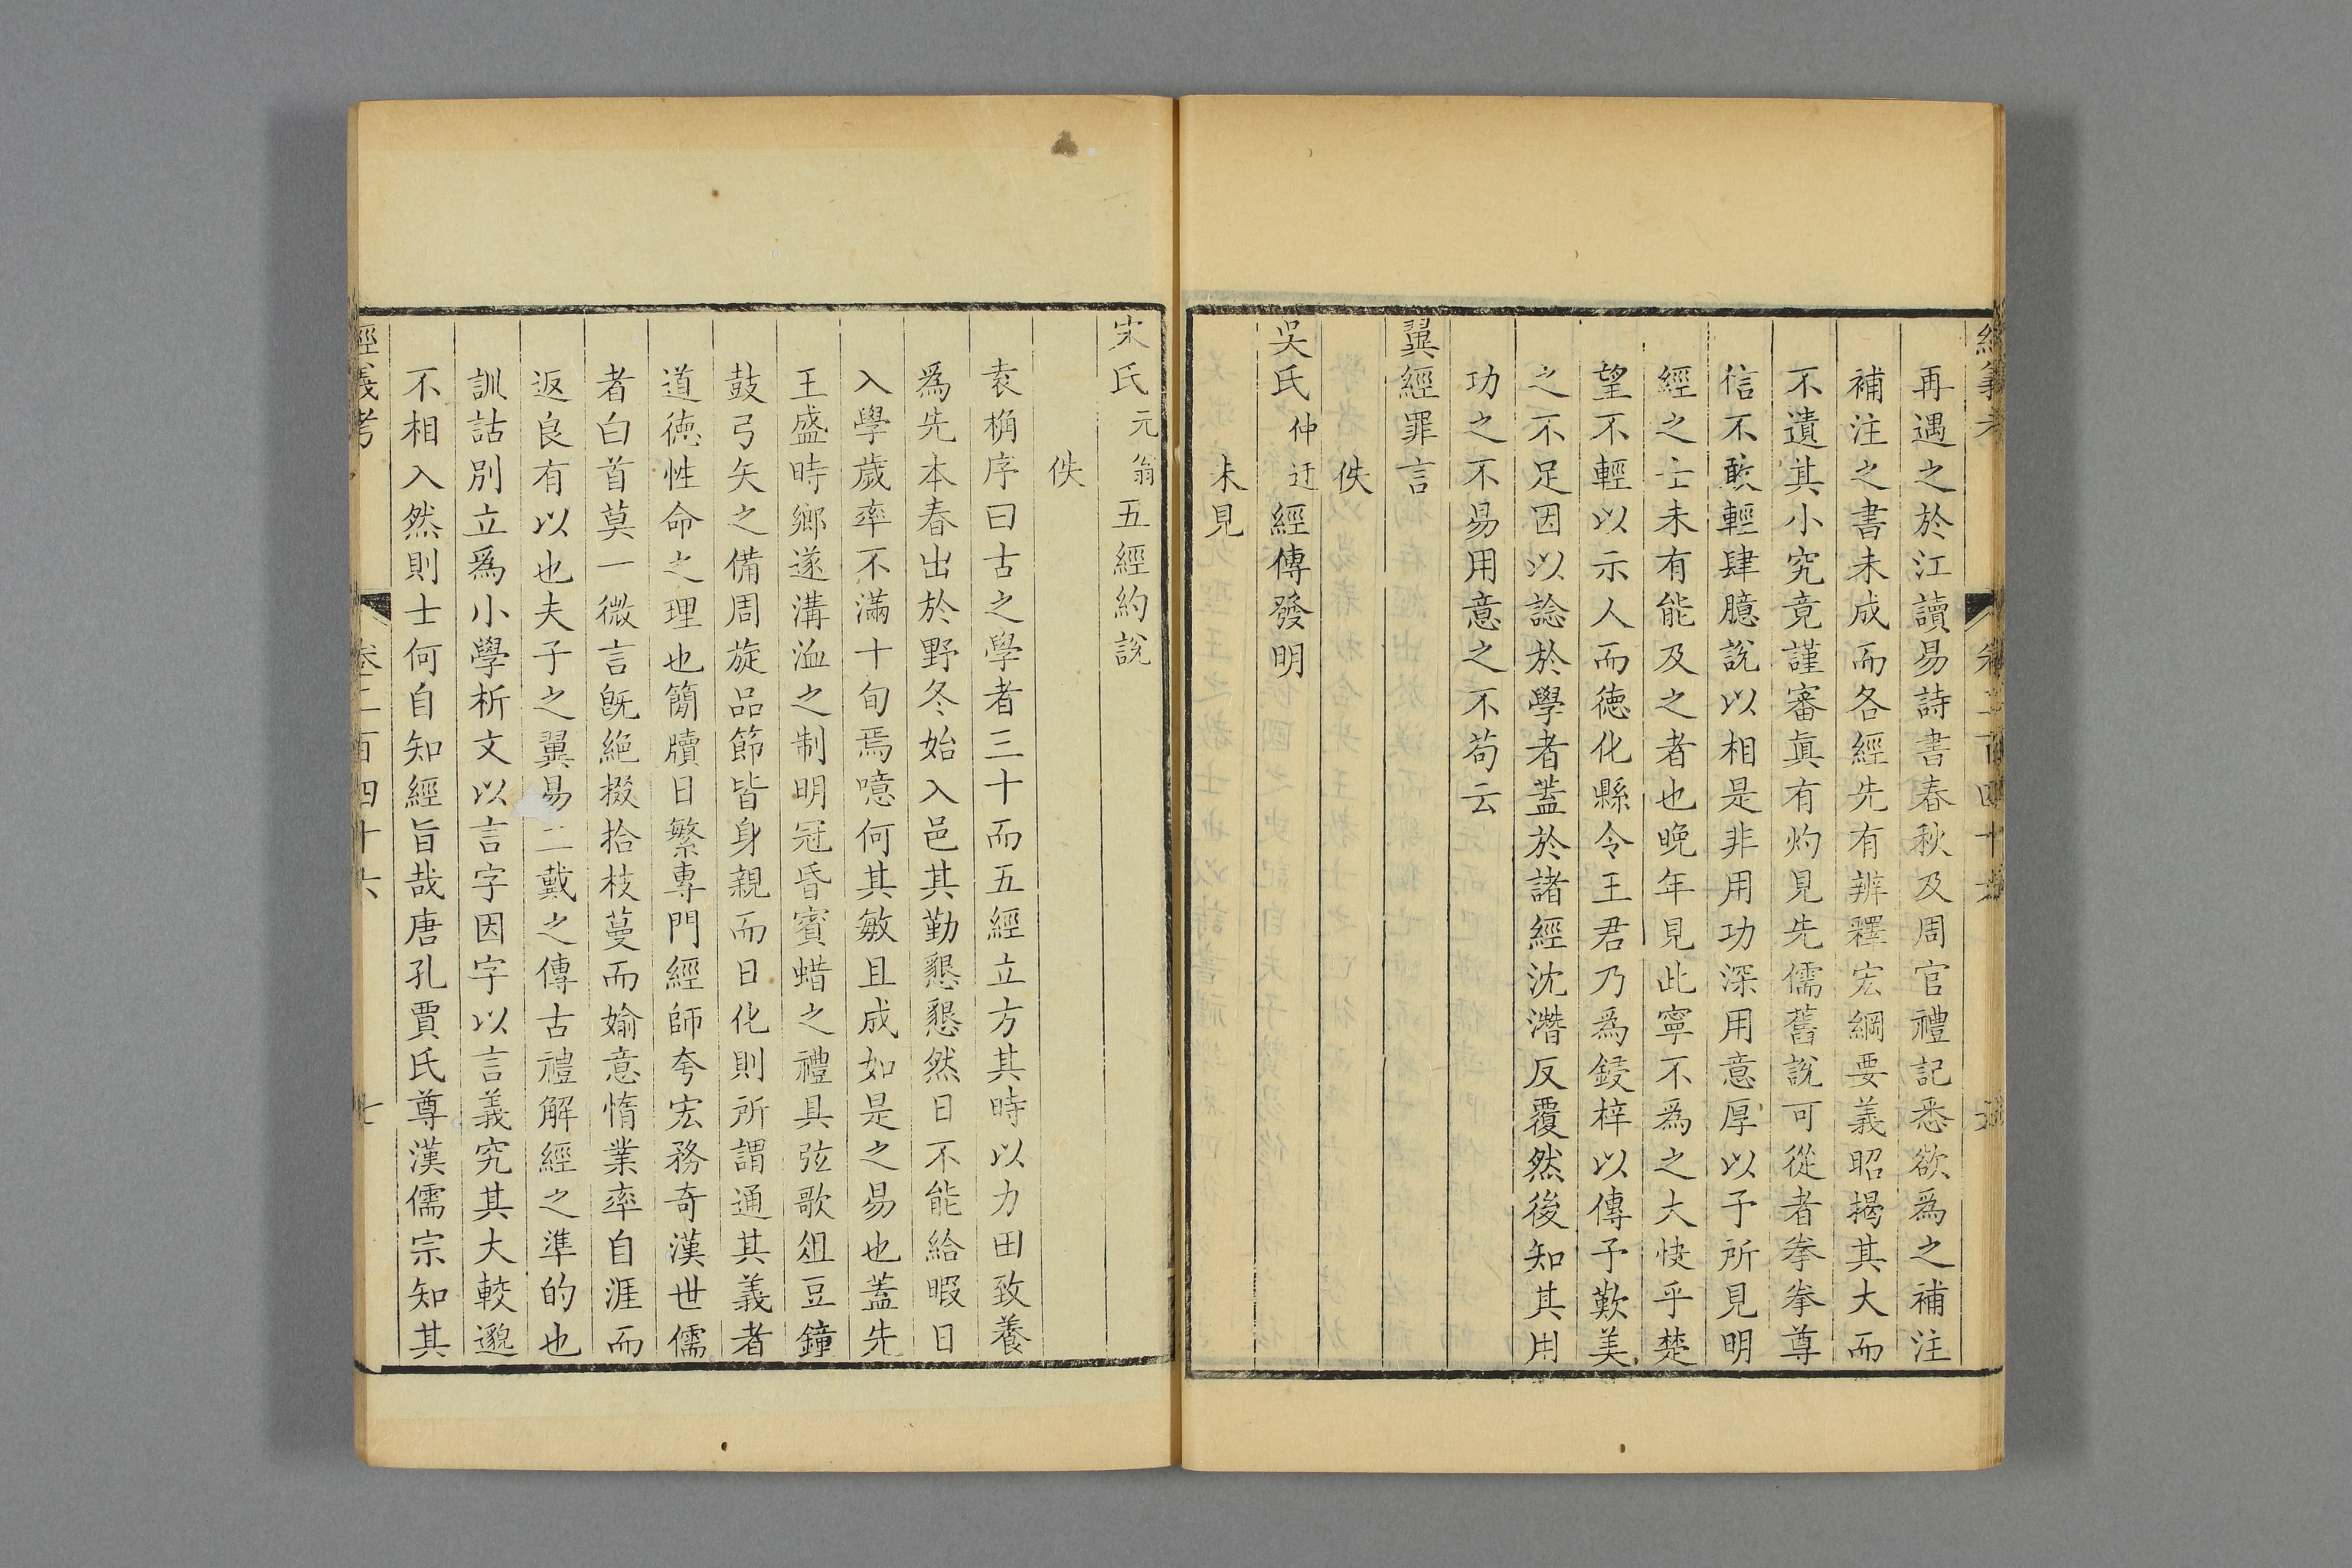 再遇之於江讀易詩書春秋及周官禮記悉欲爲之補注
補注之書未成而各經先有辨釋宏綱要義昭揭其大而
不遺其小究竟謹審眞有灼見先儒舊說可從者拳拳尊
信不敢輕肆臆說以相是非用功深用意厚以予所見明
經之士未有能及之者也晚年見此寧不爲之大快乎楚
望不輕以示人而徳化縣令王君乃爲鋟梓以傳予歎美
之不足因以諗於學者蓋於諸經沈潛反覆然後知其用
功之不易用意之不苟云
翼經罪言
佚
吳氏仲迂經傳發明
未見
宋氏元翁五經約說
佚
袁桷序曰古之學者三十而五經立方其時以力田致養
爲先本春出於野冬始入邑其勤懇懇然日不能給暇日
入學歲率不滿十旬焉噫何其敏且成如是之易也蓋先
王盛時鄉遂溝洫之制明冠昏賓蜡之禮具弦歌俎豆鐘
鼓弓矢之備周旋品節皆身親而日化則所謂通其義者
道徳性命之理也簡牘日繁專門經師夸宏務奇漢世儒
者白首莫一微言旣絶掇拾枝蔓而媮意惰業率自涯而
返良有以也夫子之翼易二戴之傳古禮解經之準的也
訓詁別立爲小學析文以言字因字以言義究其大較邈
不相入然則士何自知經旨哉唐孔賈氏尊漢儒宗知其
經義考 卷二百四十六 七